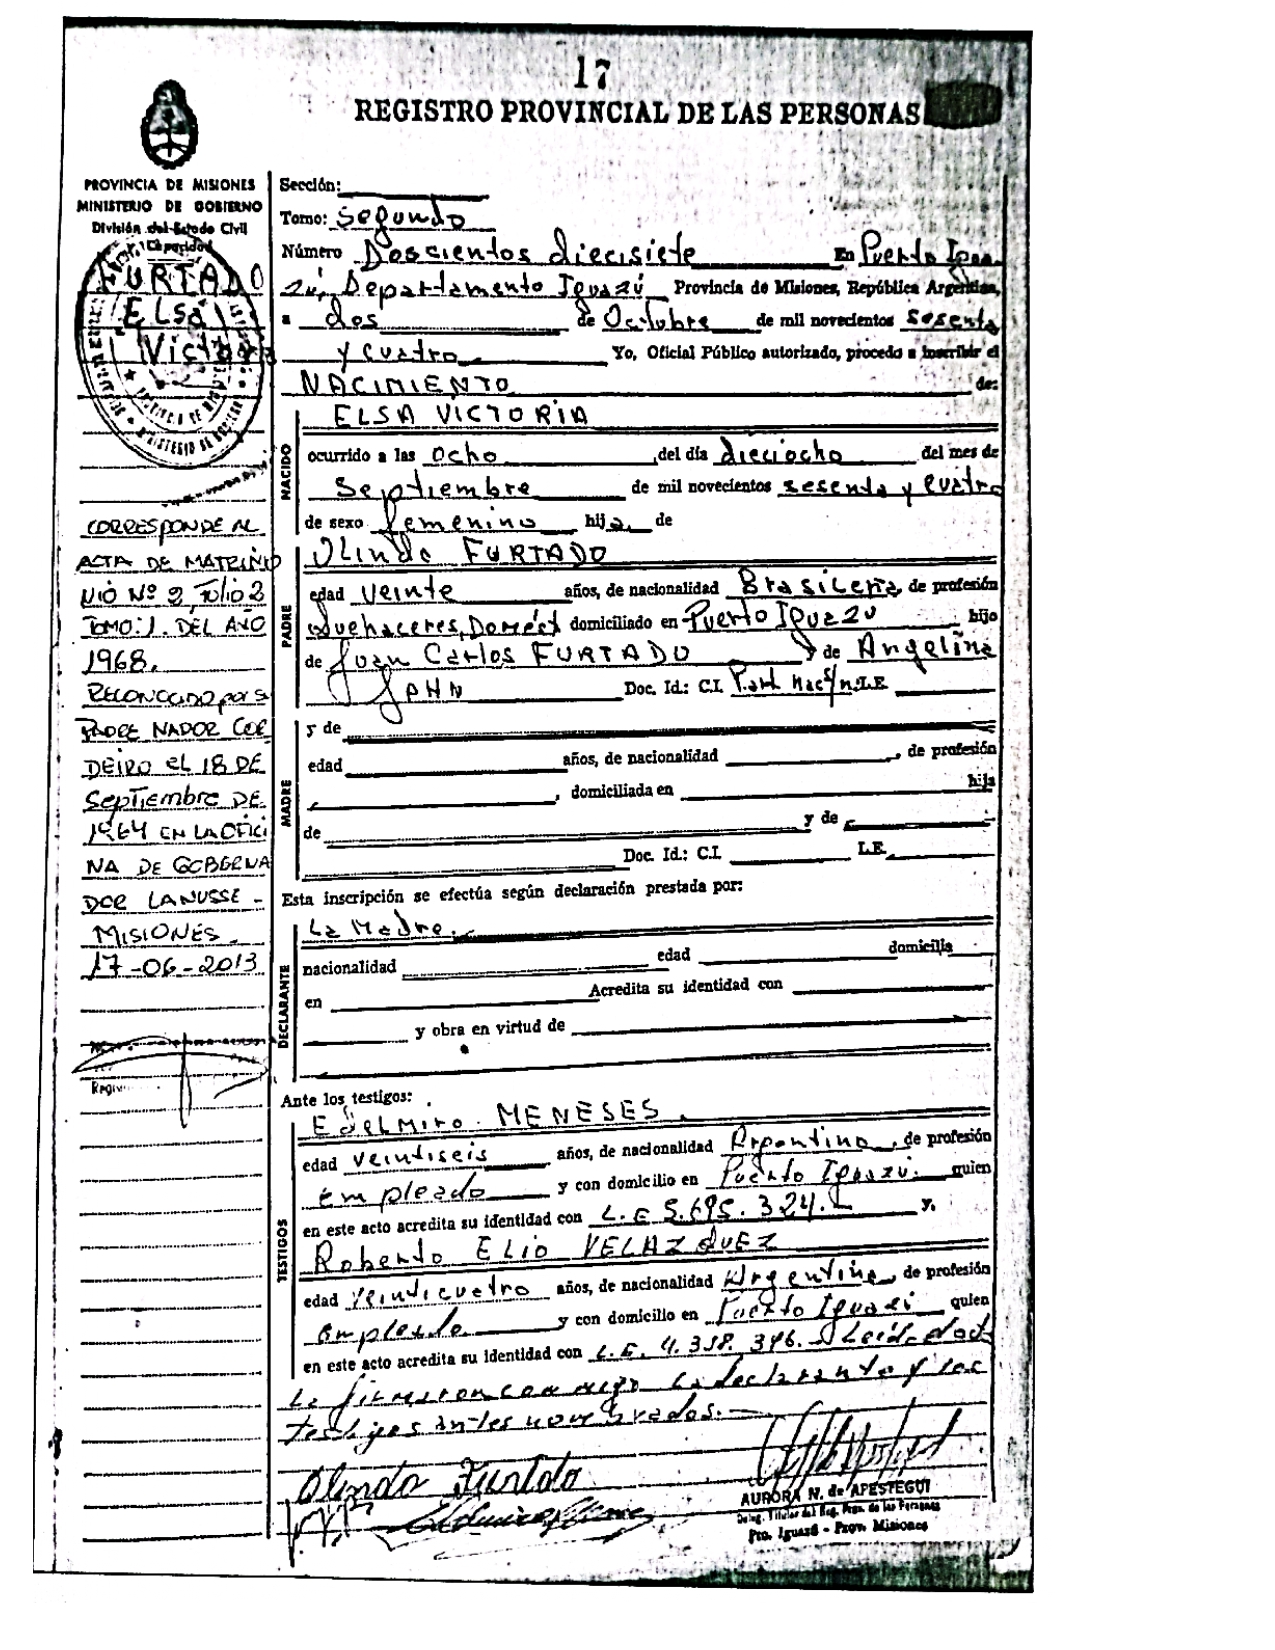 17
REGISTRO PROVINCIAL DE LAS PERSONAS
PROVINCIA DE MISIONES
MINISTERIO DE GOBIERNO
División del Estado Civil
y Capacidad
FURTADO
ELSA
Victoria
CORRESPONDE AL
ACTA DE MATRIMO
NIO Nº 2 Folio 2
TOMO: 1. DEL AÑO
1968.
RECONOCIDO por su
PADRE NADOR COR
DEIRO EL 18 DE
Septiembre DE
1964 EN LA OFICI
NA DE GOBERNA
DOR LANUSSE -
MISIONES.
17-06-2013
Sección:
Tomo: Segundo
Número Doscientos diecisiete en Puerto Igua
zú, Departamento Iguazú Provincia de Misiones, República Argentina,
a dos de Octubre de mil novecientos sesenta
y cuatro Yo, Oficial Público autorizado, procedo a inscribir el
NACIMIENTO de:
NACIDO
ELSA VICTORIA
ocurrido a las ocho del día dieciocho del mes de
Septiembre de mil novecientos sesenta y cuatro
de sexo femenino hija de
PADRE
Olinda FURTADO
edad veinte años, de nacionalidad Brasileña, de profesión
Quehaceres, Domést domiciliado en Puerto Iguazú hijo
de Juan Carlos FURTADO y de Angelina
Doc. Id.: C.I. Part. Nac. s/n. L.E.
MADRE
y de
edad años, de nacionalidad , de profesión
, domiciliada en hija
de y de
Doc. Id.: C.I. L.E.
Esta inscripción se efectúa según declaración prestada por:
DECLARANTE
La Madre.
nacionalidad edad domicilia
en Acredita su identidad con
y obra en virtud de
Ante los testigos:
TESTIGOS
Edelmiro MENESES.
edad veintiseis años, de nacionalidad Argentina, de profesión
empleado y con domicilio en Puerto Iguazú. quien
en este acto acredita su identidad con L.E 5.695.324. y,
Roberto ELIO VELAZQUEZ
edad Veinticuatro años, de nacionalidad Argentina, de profesión
empleado y con domicilio en Puerto Iguazú quien
en este acto acredita su identidad con L.E. 4. Leída el act
la firmaron conmigo la declarante y los
testigos antes nombrados.
Olinda Furtado
AURORA N. de APESTEGUI
Deleg. Titular del Reg. Prov. de las Personas
Pto. Iguazú - Prov. Misiones